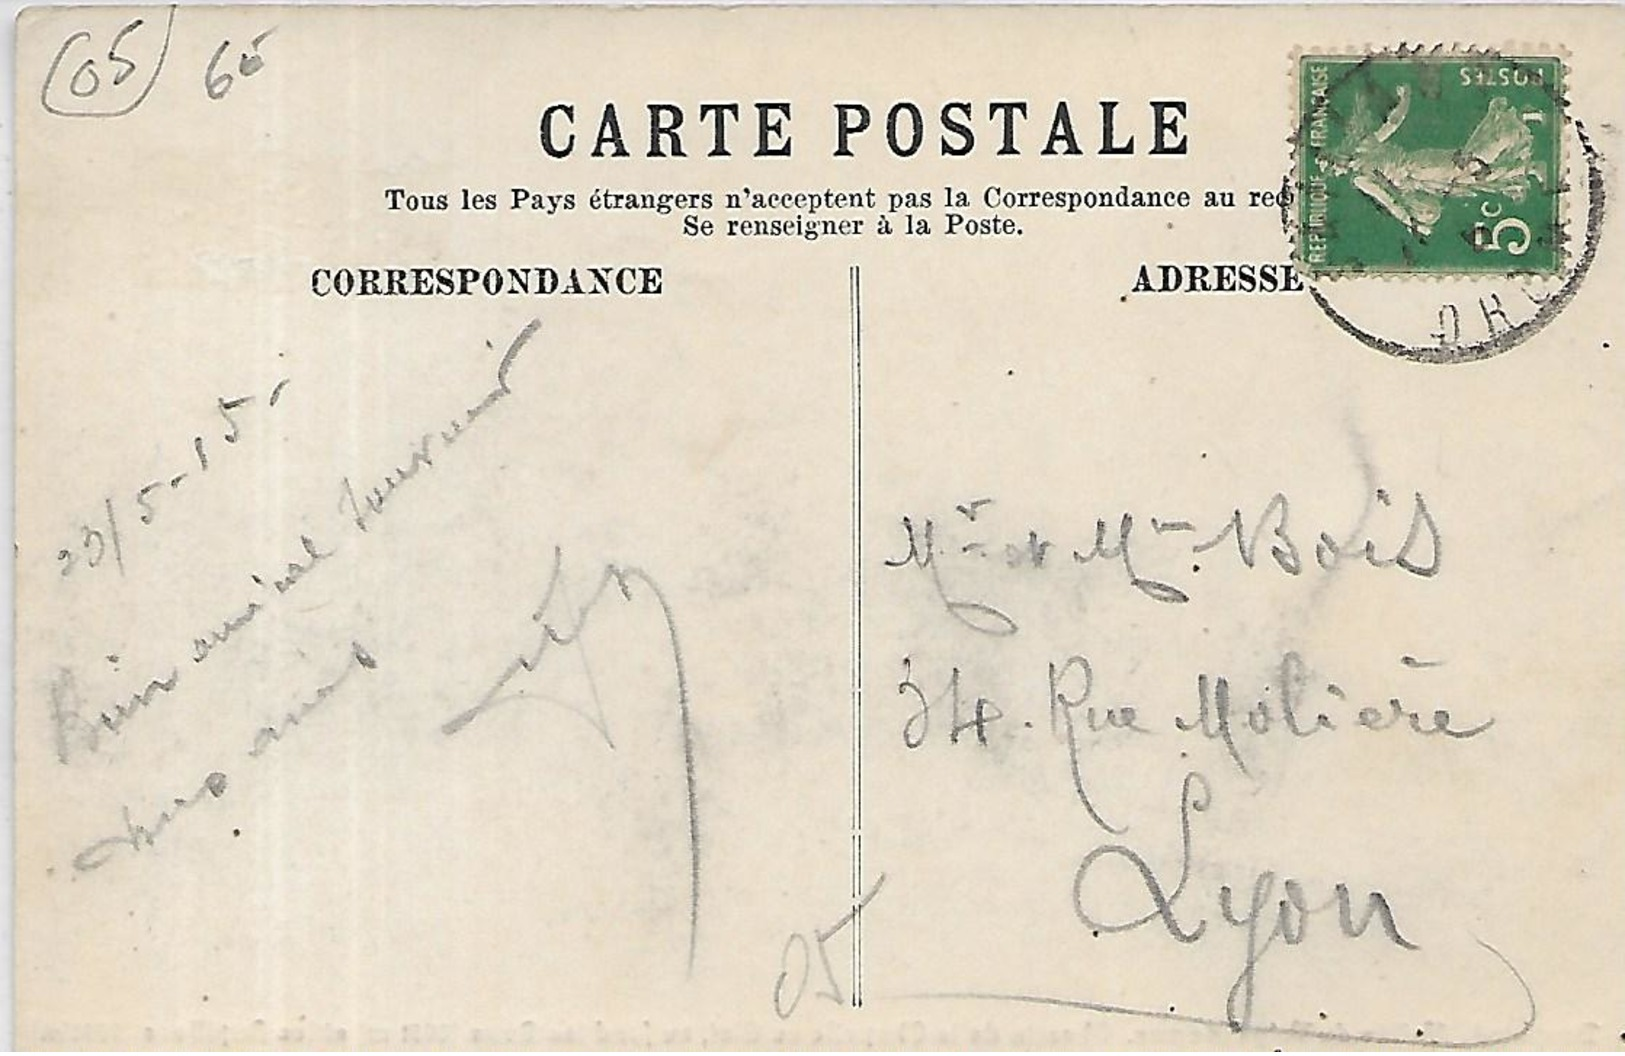 05 60
CARTE POSTALE
Tous les Pays étrangers n'acceptent pas la Correspondance au rec
Se renseigner à la Poste.
CORRESPONDANCE
ADRESSE
REPUBLIQUE FRANÇAISE
POSTES
5c
23/5-15-
Bien amical souvenir
mes amis
Mr et Mme Bois
34. Rue Molière
Lyon
05